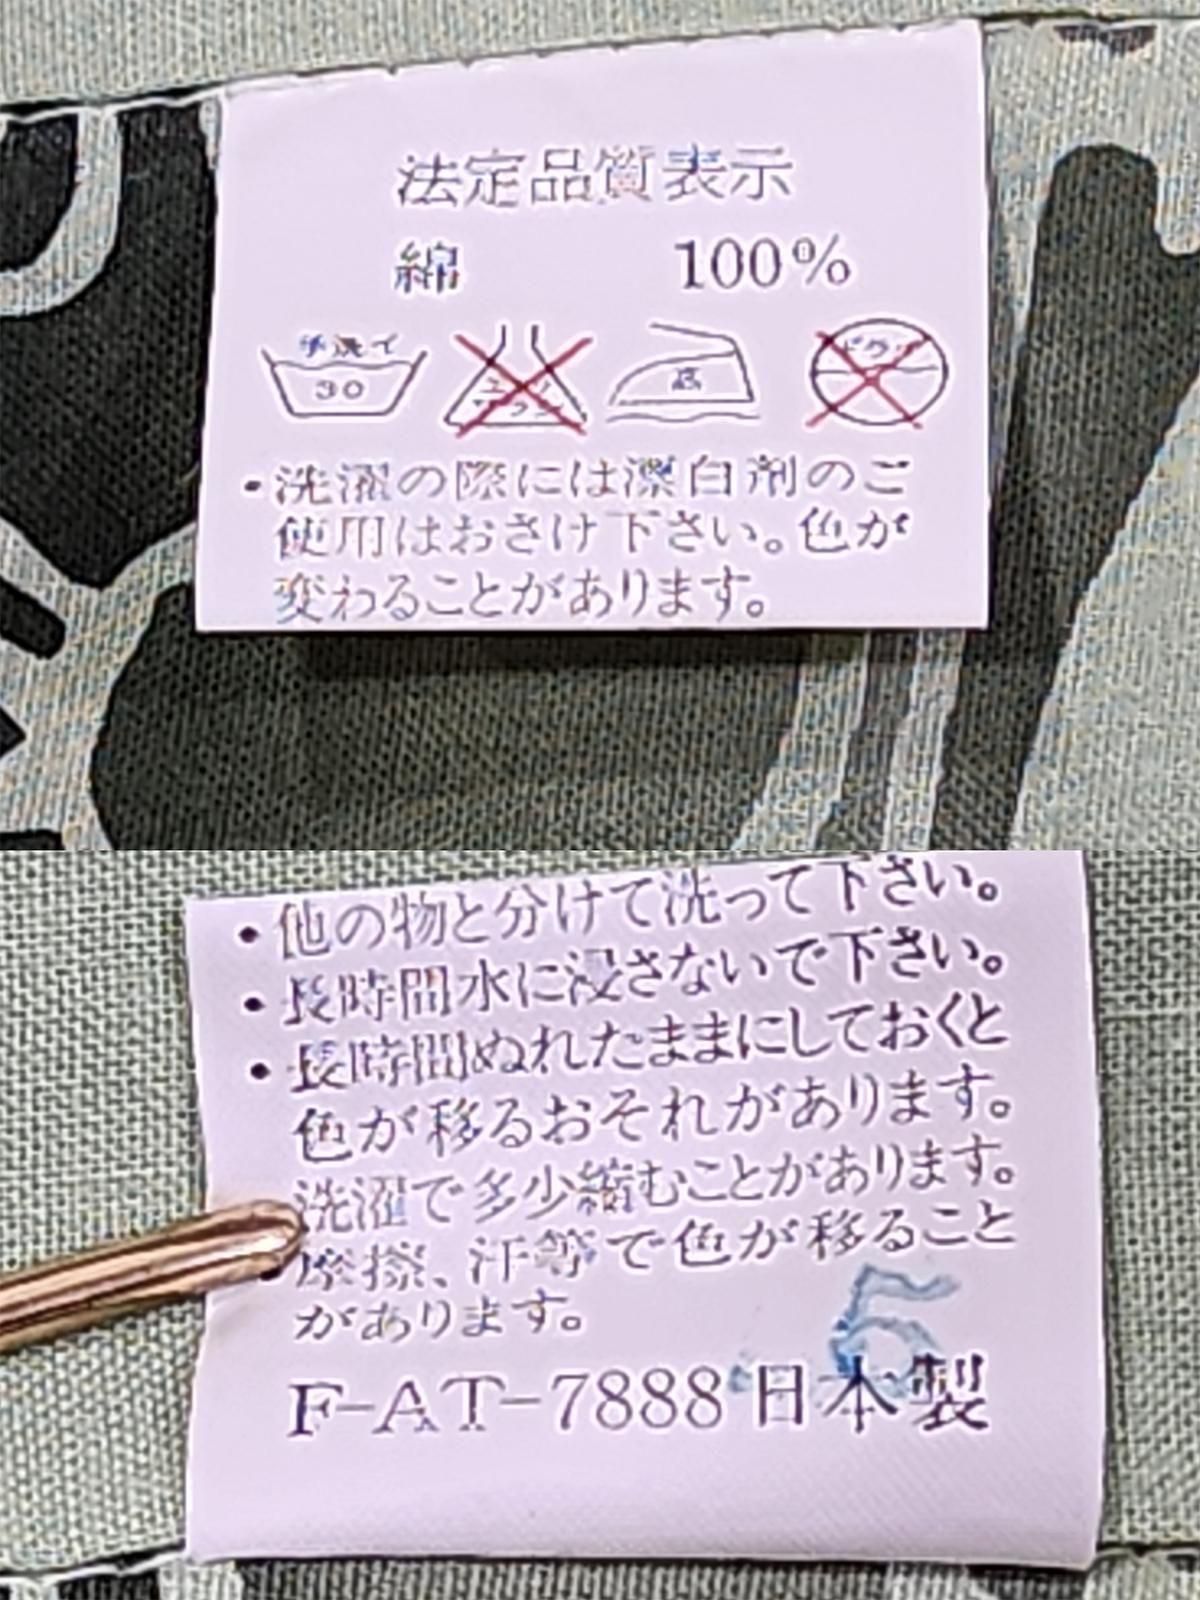 法定品質表示
綿 100%
手洗イ
30
高
ドライ
・洗濯の際には漂白剤のご
使用はおさけ下さい。色が
変わることがあります。
・他の物と分けて洗って下さい。
・長時間水に浸さないで下さい。
・長時間ぬれたままにしておくと
色が移るおそれがあります。
洗濯で多少縮むことがあります。
・摩擦、汗等で色が移ること
があります。
5
F-AT-7888 日本製